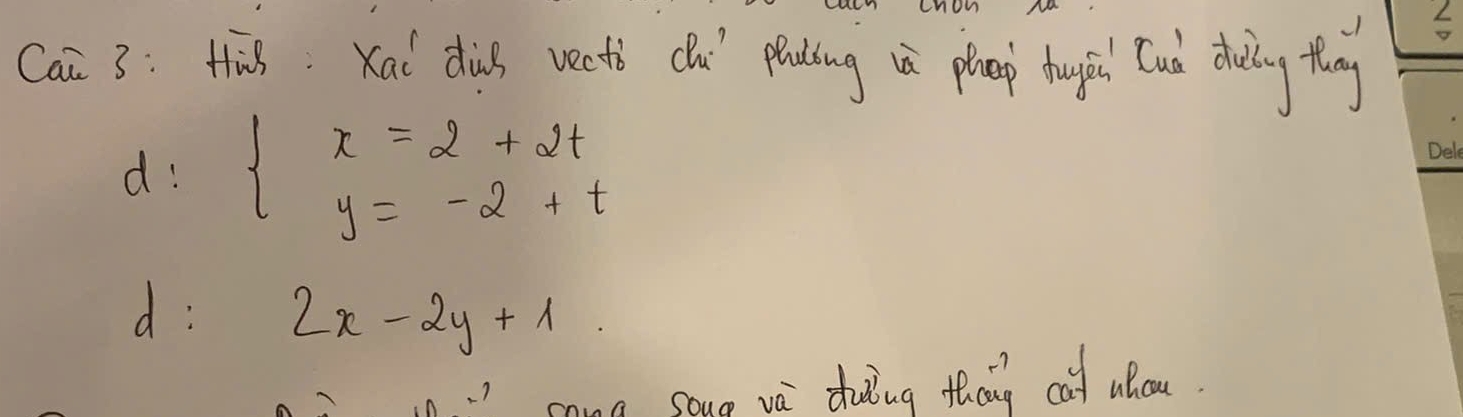 cách chọn là.
Câu 3: Hình: Xác định vectơ chỉ phương và pháp tuyến của đường thẳng
d: { x = 2 + 2t
y = -2 + t
d: 2x - 2y + 1.
song song và đường thẳng cắt nhau.
2
Dele